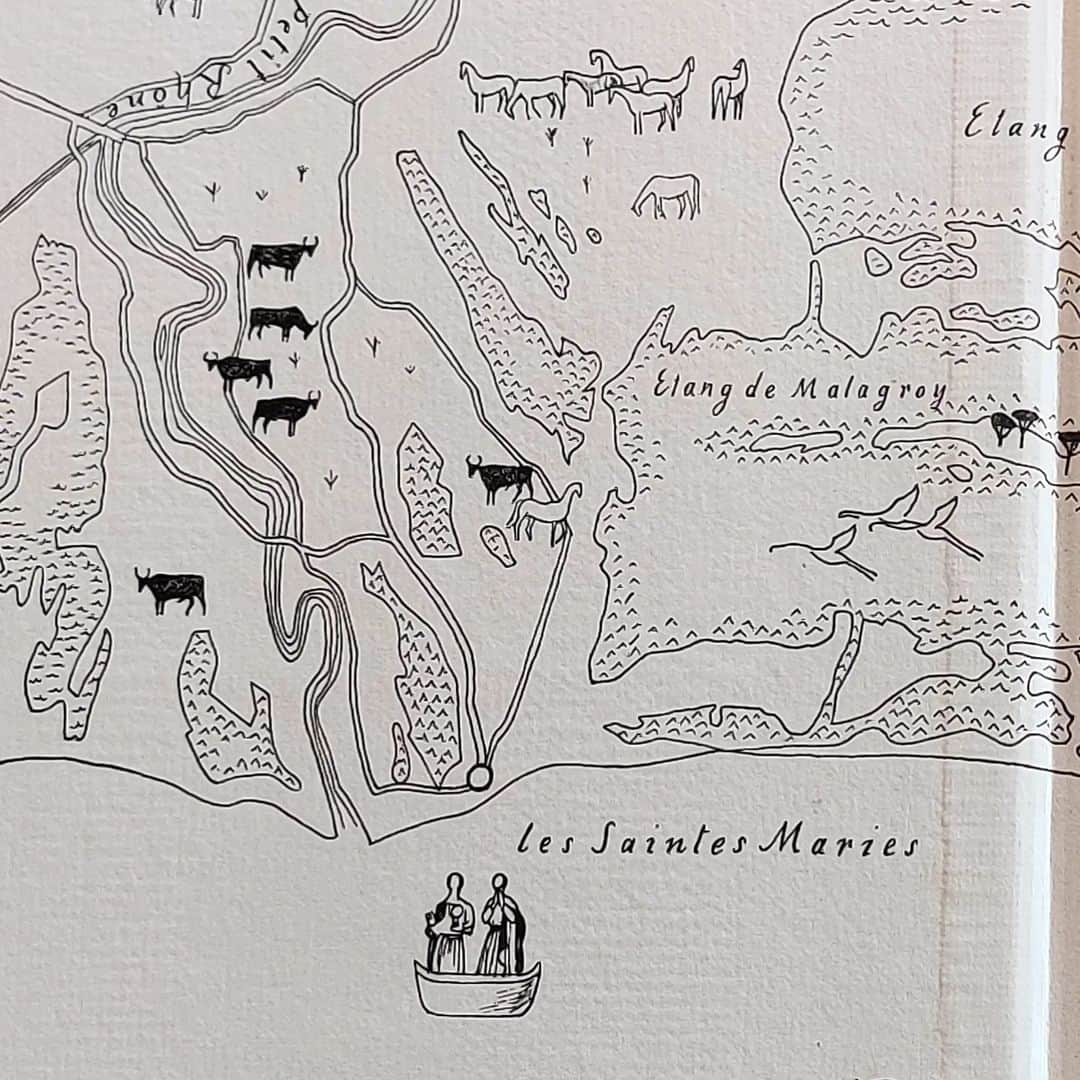 Petit Rhône
Etang
Etang de Malagroy
les Saintes Maries